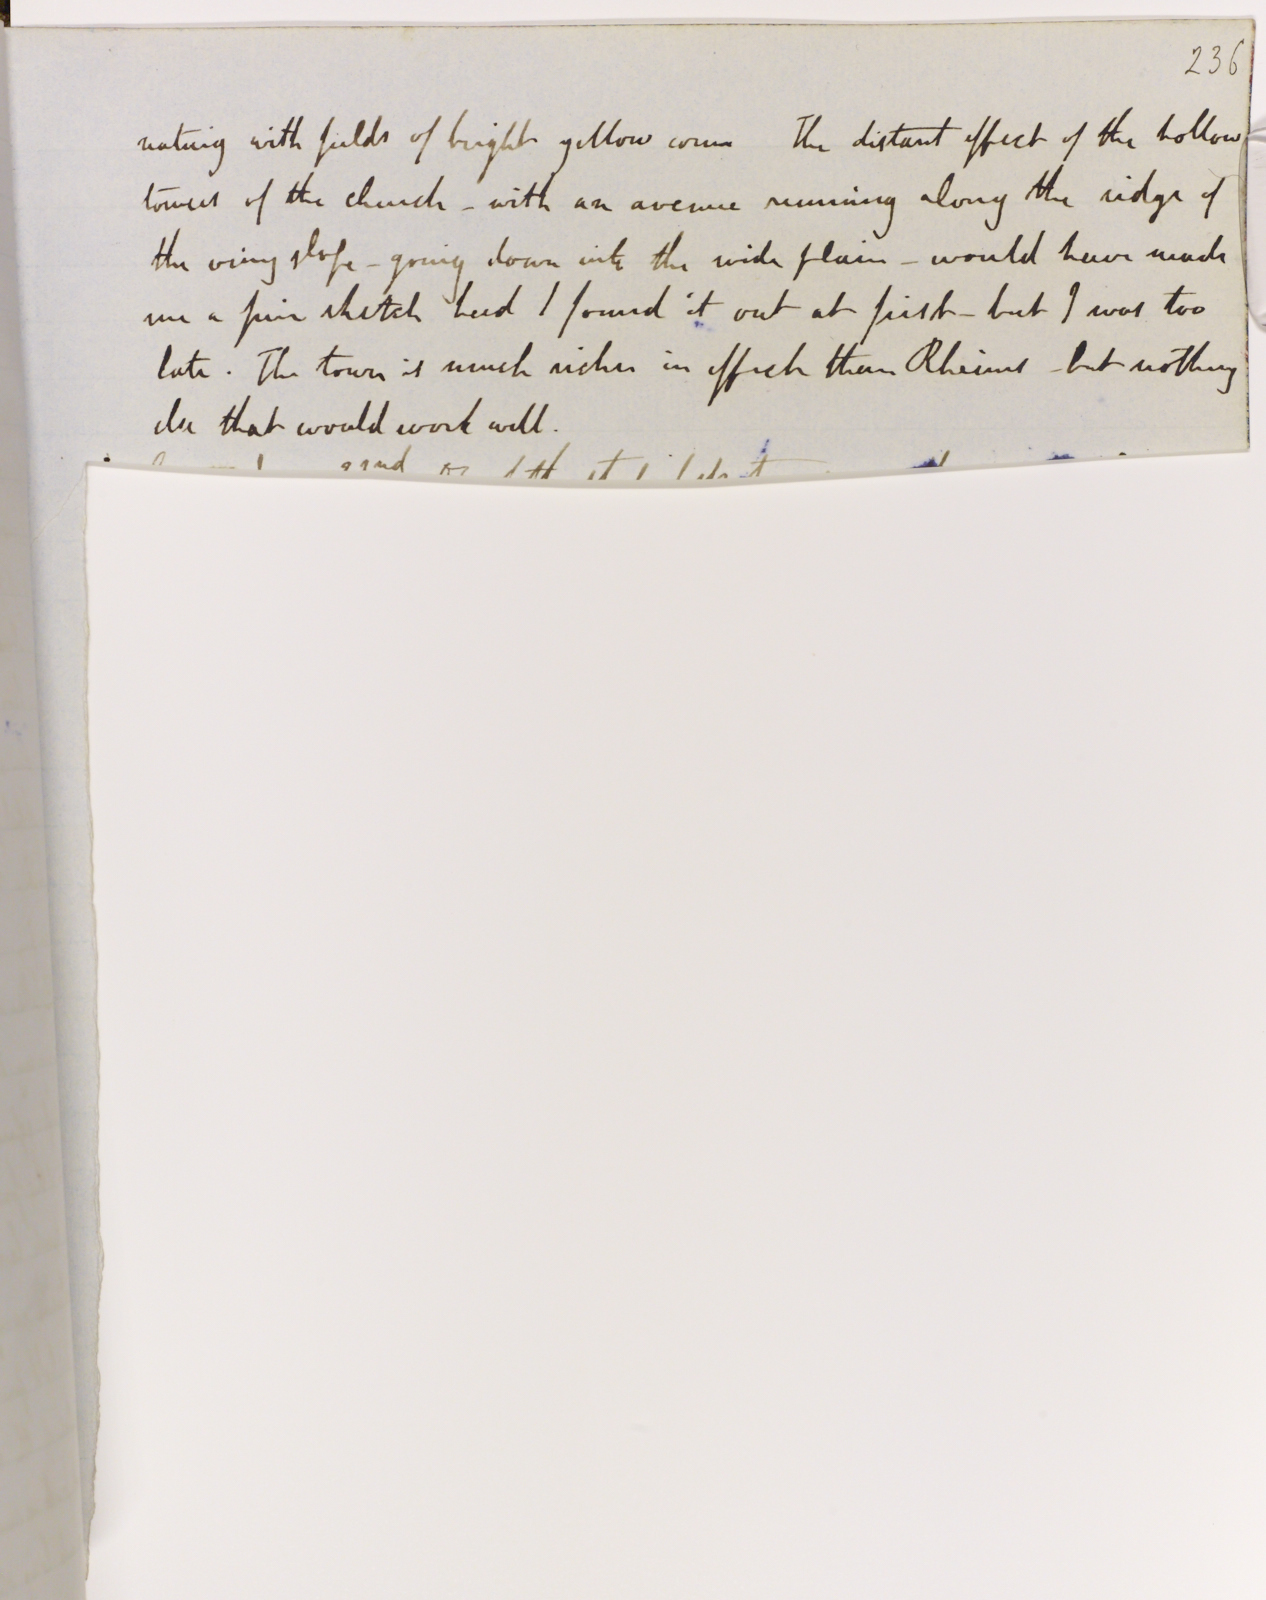 236
nating with fields of bright yellow corn The distant effect of the hollow
towers of the church - with an avenue running along the ridge of
the vine slope - going down into the wide plain - would have made
me a fine sketch had I found it out at first - but I was too
late. The town is much richer in effect than Rheims - but nothing
else that would work well.